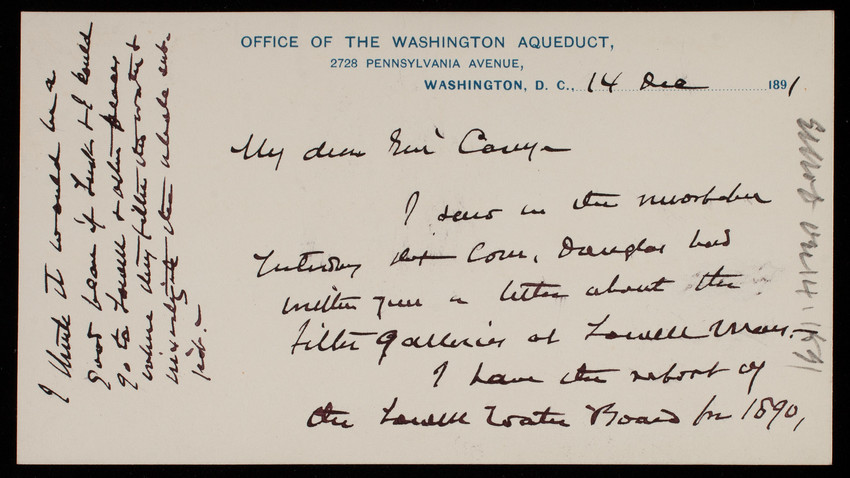 OFFICE OF THE WASHINGTON AQUEDUCT,
2728 PENNSYLVANIA AVENUE,
WASHINGTON, D. C., 14 Dec 1891
My dear Casey -
I saw in the newspaper
Yesterday that Com. Douglas had
written you a letter about the
filter galleries at Lowell Mass. -
I have the report of
the Lowell Water Board for 1890,
I think it would be a
good plan if Lusk & I could
go to Lowell & other places
where they filter the water &
investigate the whole sub-
ject. -
14. 1891